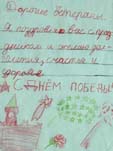 Дорогие ветераны.
Я поздравляю Вас с праз
дником и желаю дол
голетия, счастья и
здоровья.
С ДНЁМ ПОБЕДЫ